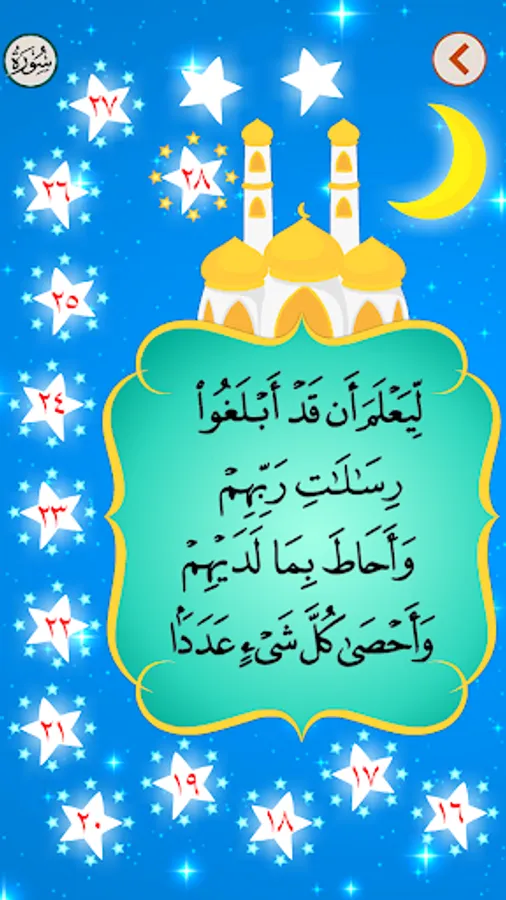 سُورَة
٢٧
٢٨
٢٦
٢٥
٢٤
٢٣
٢٢
٢١
لِّيَعۡلَمَ أَن قَدۡ أَبۡلَغُواْ
رِسَٰلَٰتِ رَبِّهِمۡ
وَأَحَاطَ بِمَا لَدَيۡهِمۡ
وَأَحۡصَىٰ كُلَّ شَيۡءٍ عَدَدَۢا
١٦
١٧
١٨
١٩
٢٠